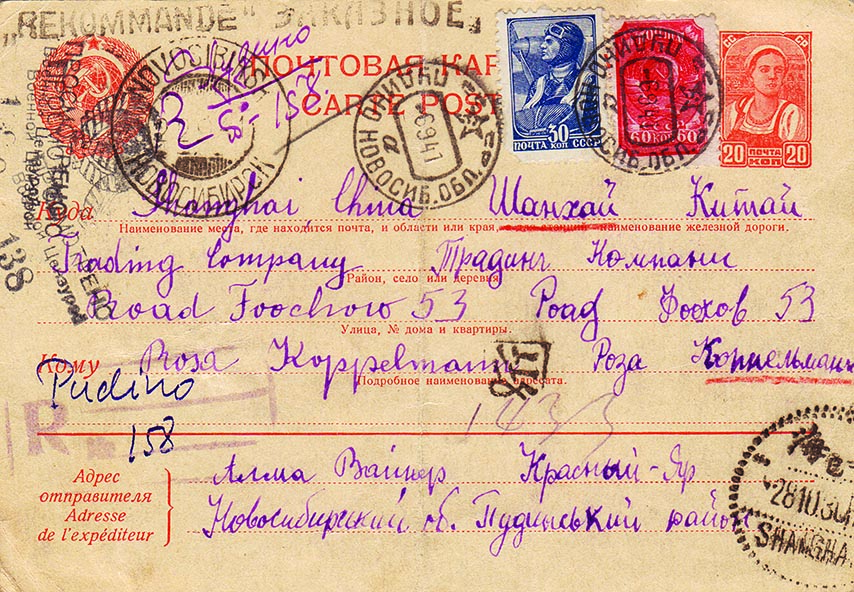 „REKOMMANDÉ" ЗАКАЗНОЕ
ПОЧТОВАЯ КАР
CARTE POST
NOVOSIBIRSK
НОВОСИБИРСК
R 158
ПУДИНО НОВОСИБ. ОБЛ.
6 9 41
30 ПОЧТА КОП СССР
60 КОП 60
СССР
20 ПОЧТА КОП 20
138
Куда Shanghai China Шанхай Китай
Наименование места, где находится почта, и области или края, наименование железной дороги.
Trading Company Традинг Компани
Район, село или деревня
Road Foochow 53 Роад Фоохов 53
Улица, № дома и квартиры.
Кому Rosa Koppelmann Роза Коппельманн
Подробное наименование адресата.
Pudino
158
R
Адрес отправителя
Adresse de l'expéditeur
Алма Вайнер Красный-Яр
Новосибирский об. Пудинський район
SHANGHA